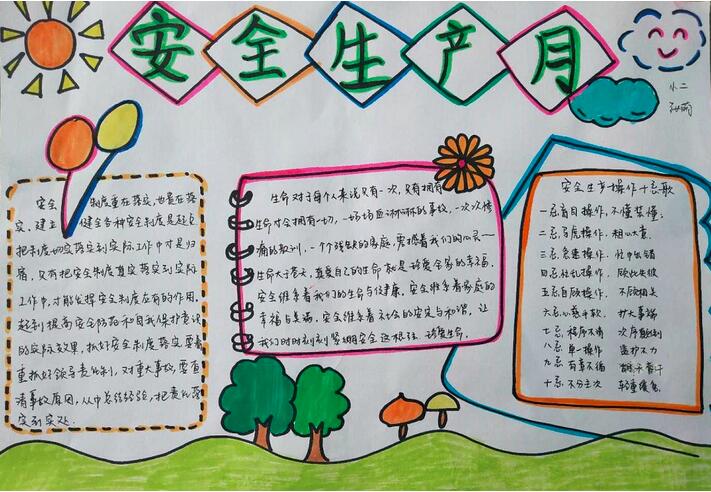 安全生产月
小二
安全 制度重在落实,也贵在落
实,建立 健全各种安全制度是起点
把制度切实落实到实际工作中才是归
宿,只有把安全制度真实落实到实际
工作中,才能发挥安全制度应有的作用,
起到提高安全防范和自我保护意识
的实际效果,抓好安全制度落实要着
重抓好领导责任制,对重大事故要查
清事故原因,从中总结经验,把责任落
实到实处.
生命对于每个人来说只有一次,只有拥有
生命才会拥有一切,一场场血淋淋的事故,一次次惨
痛的教训,一个个残缺的家庭,震撼着我们的心灵—
生命大于天,尊爱自己的生命就是珍爱全家的幸福,
安全维系着我们的生命与健康,安全维系着家庭的
幸福与美满,安全维系着社会的安定与和谐,让
我们时时刻刻紧绷安全这根弦,珍爱生命.
安全生产操作十忌歌
一忌盲目操作,不懂装懂;
二忌马虎操作,粗心大意.
三忌急速操作,忙中出错
四忌忙乱操作,顾此失彼
五忌自顾操作,不顾相关
六忌心存干扰,
七忌程序不清 次序颠倒
八忌单一操作 监护不力
九忌有章不循
十忌不分主次